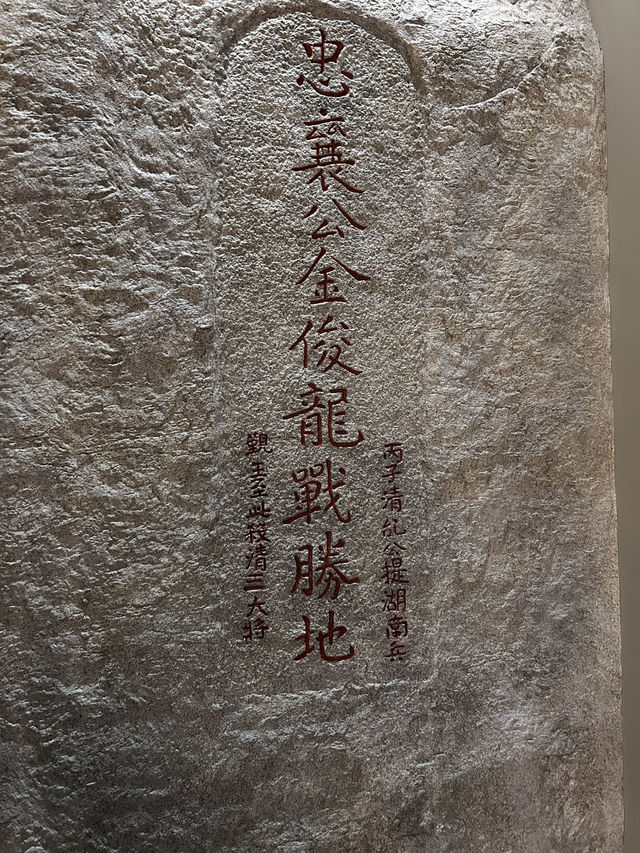 忠襄公金俊龍戰勝地
丙子清乱公提湖南兵
覲王至此殺清三大将